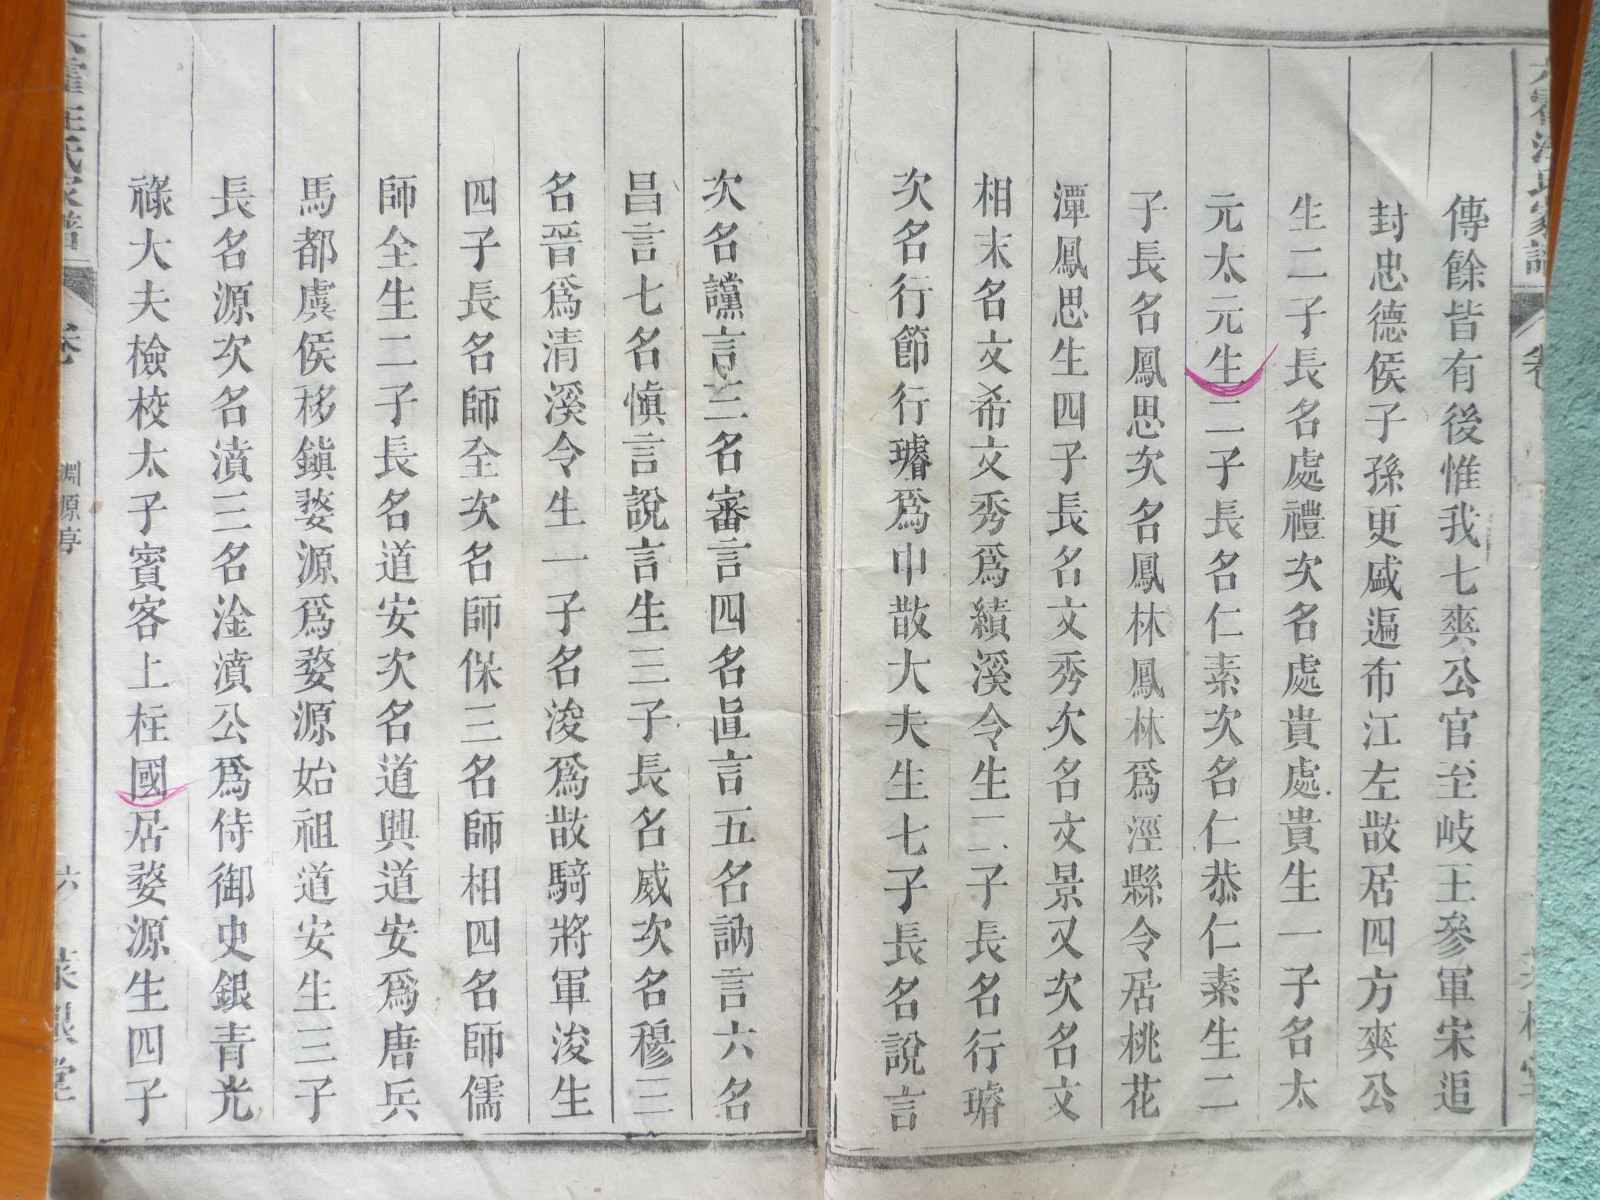 傳餘皆有後惟我七爽公官至岐王參軍宋追
封忠德侯子孫更盛遍布江左散居四方爽公
生二子長名處禮次名處貴處貴生一子名太
元太元生二子長名仁素次名仁恭仁素生二
子長名鳳思次名鳳林鳳林為涇縣令居桃花
潭鳳思生四子長名文秀次名文景又次名文
相末名文希文秀爲績溪令生二子長名行璿
次名行節行璿爲中散大夫生七子長名說言
次名讜言三名審言四名直言五名訥言六名
昌言七名愼言說言生三子長名威次名穆三
名晉爲清溪令生一子名浚爲散騎將軍浚生
四子長名師全次名師保三名師相四名師儒
師全生二子長名道安次名道興道安爲唐兵
馬都虞侯移鎭婺源爲婺源始祖道安生三子
長名源次名濆三名淦濆公爲侍御史銀青光
祿大夫檢校太子賓客上柱國居婺源生四子
汪氏家譜
卷
淵源亭
六